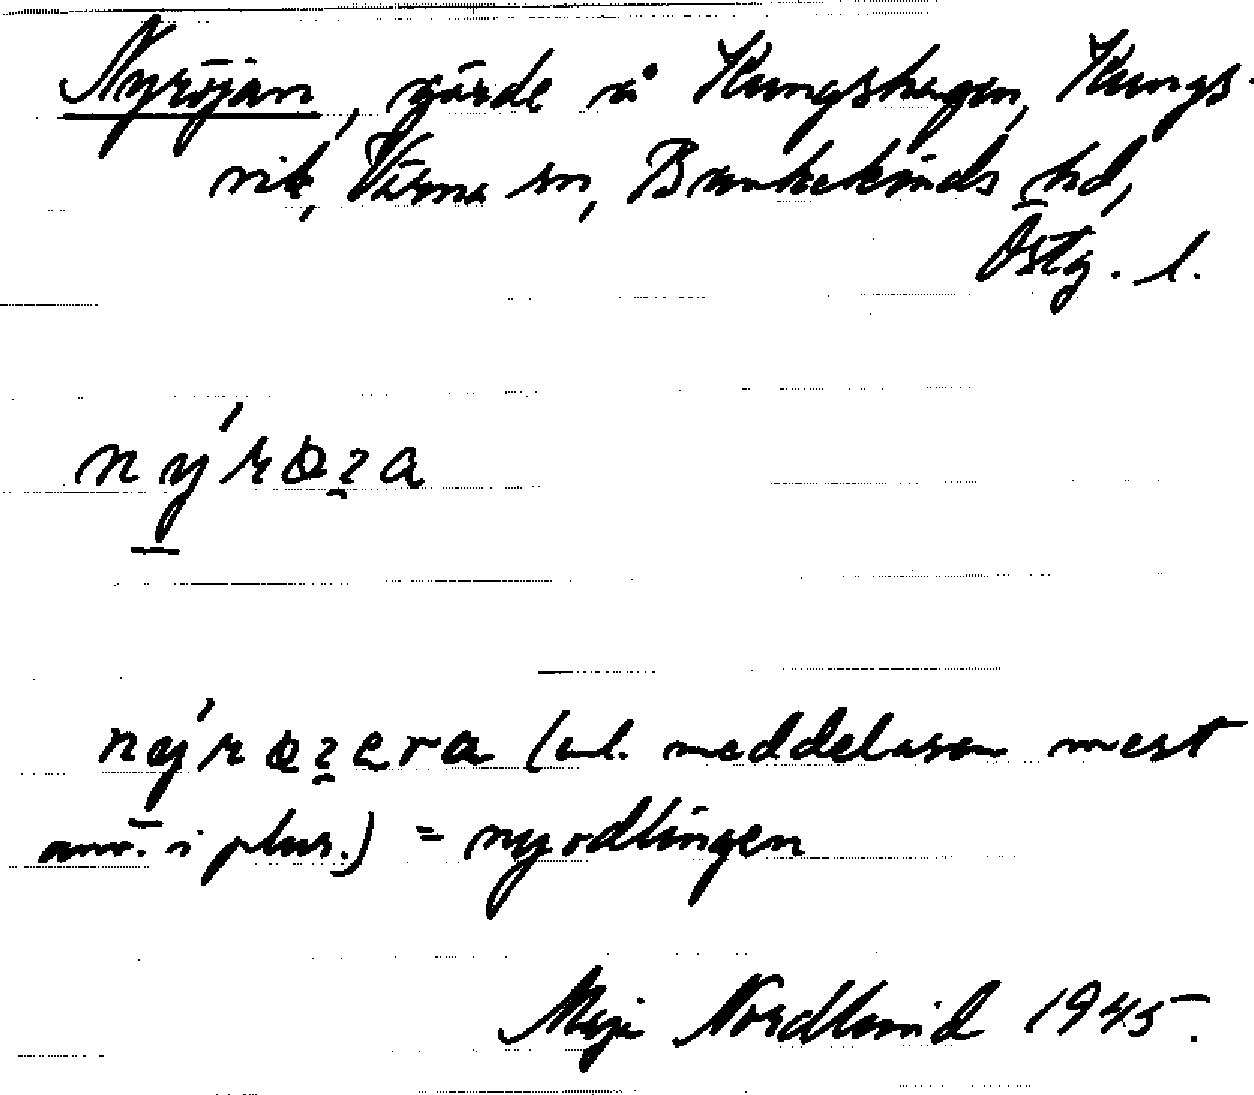 Nyröjan, gärde å Kungshagen, Kungs-
vik, Värna sn, Bankekinds hd,
Östg. l.
nýrɷʓa
nýrɷʓera (enl. meddelaren mest
anv. i plur.) = nyodlingen
Meji Nordlund 1945.